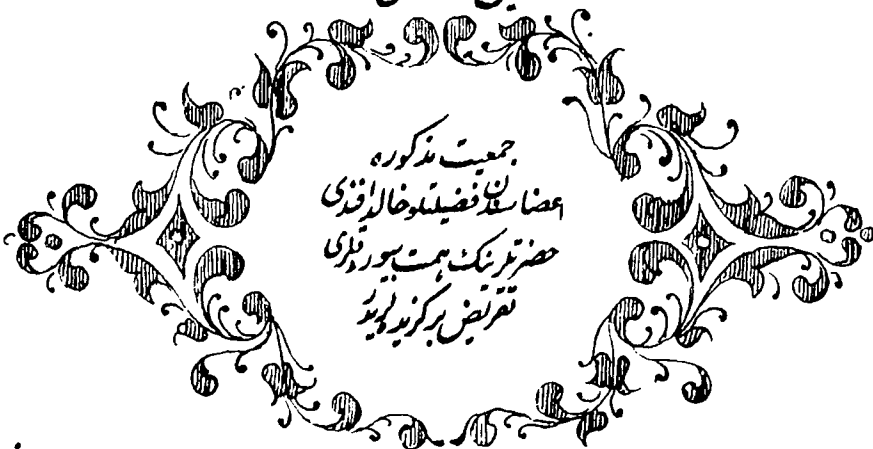 جمعیت مذکوره
اعضاسندن فضیلتلو خالد افندی
حضرتلرینک همت بیوردقلری
تقریض برگزیده‌لریدر